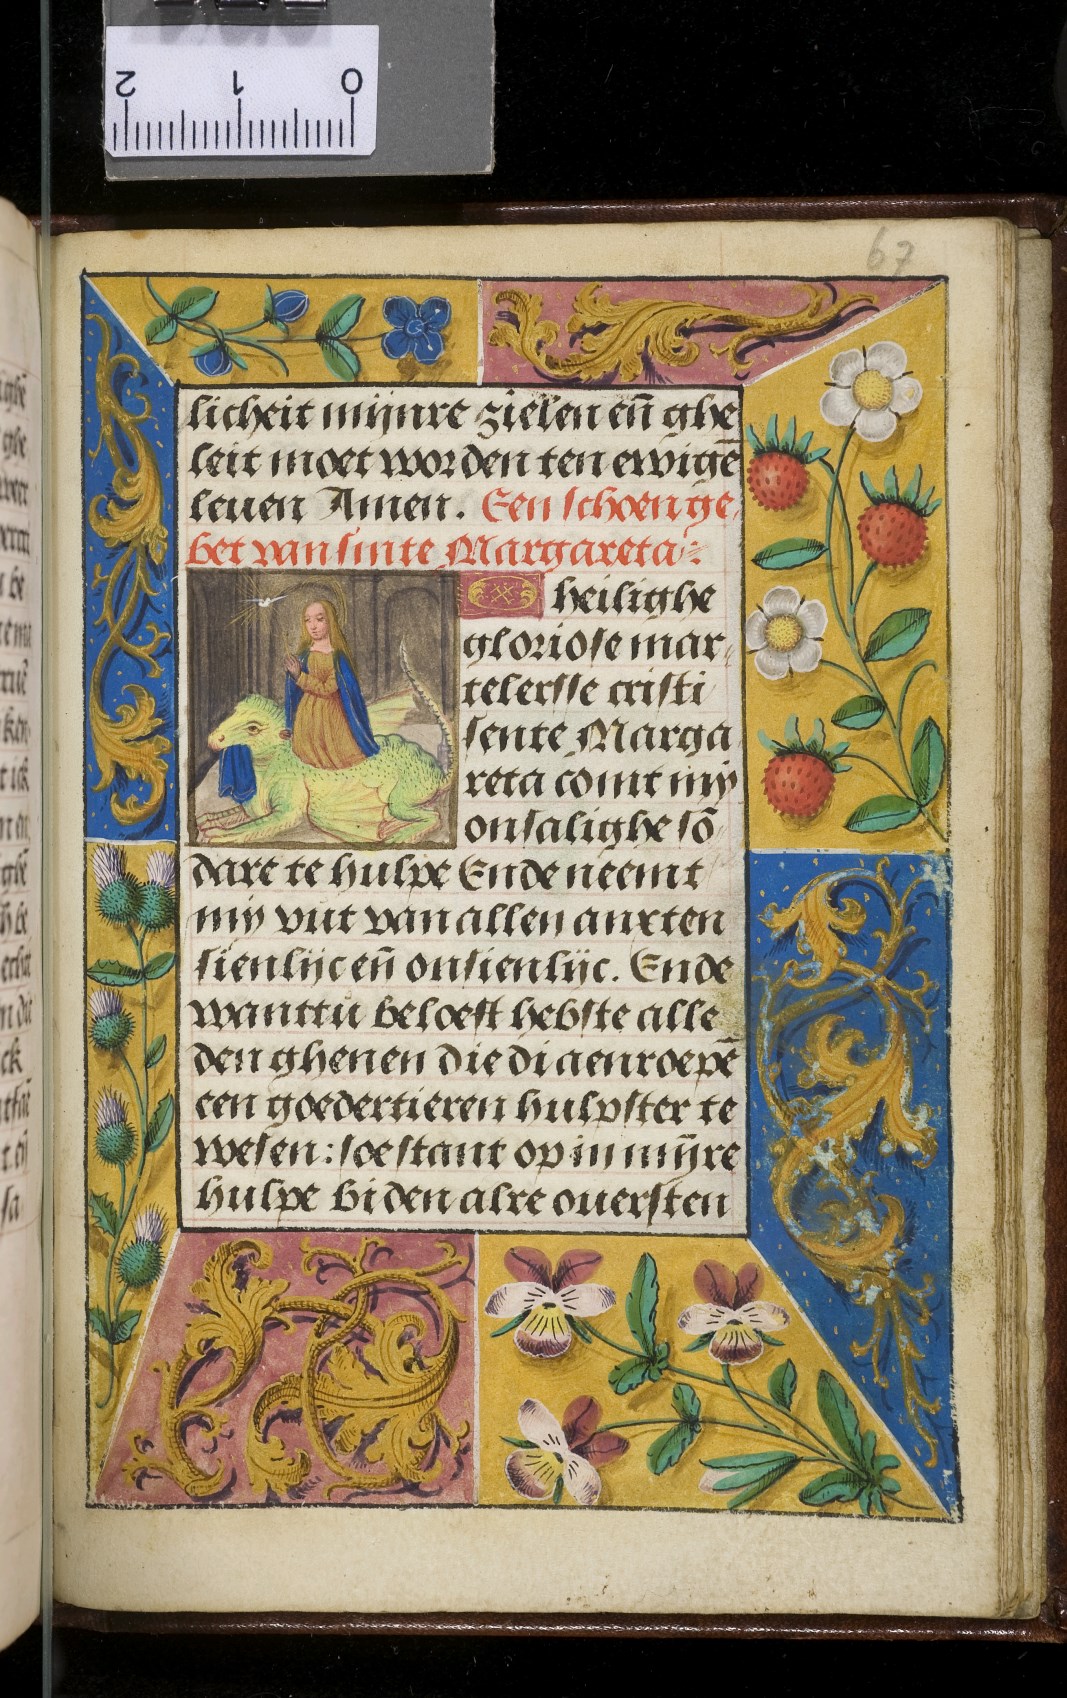 2 1 0
67
licheit mijnre zielen en̄ ghe
leit moet worden ten ewigē
leuen Amen. Een schoen ge-
bet van sinte Margareta:
heilighe
gloriose mar-
telersse cristi
sente Marga
reta comt mÿ
onsalighe sō-
dare te hulpe Ende neemt
mÿ vut van allen anxten
sienlijc en̄ onsienlijc. Ende
wanttu beloest hebste alle
den ghenen die di aenroepē
een goedertieren hulpster te
wesen: soe stant op in mijnre
hulpe bi den alre ouersten